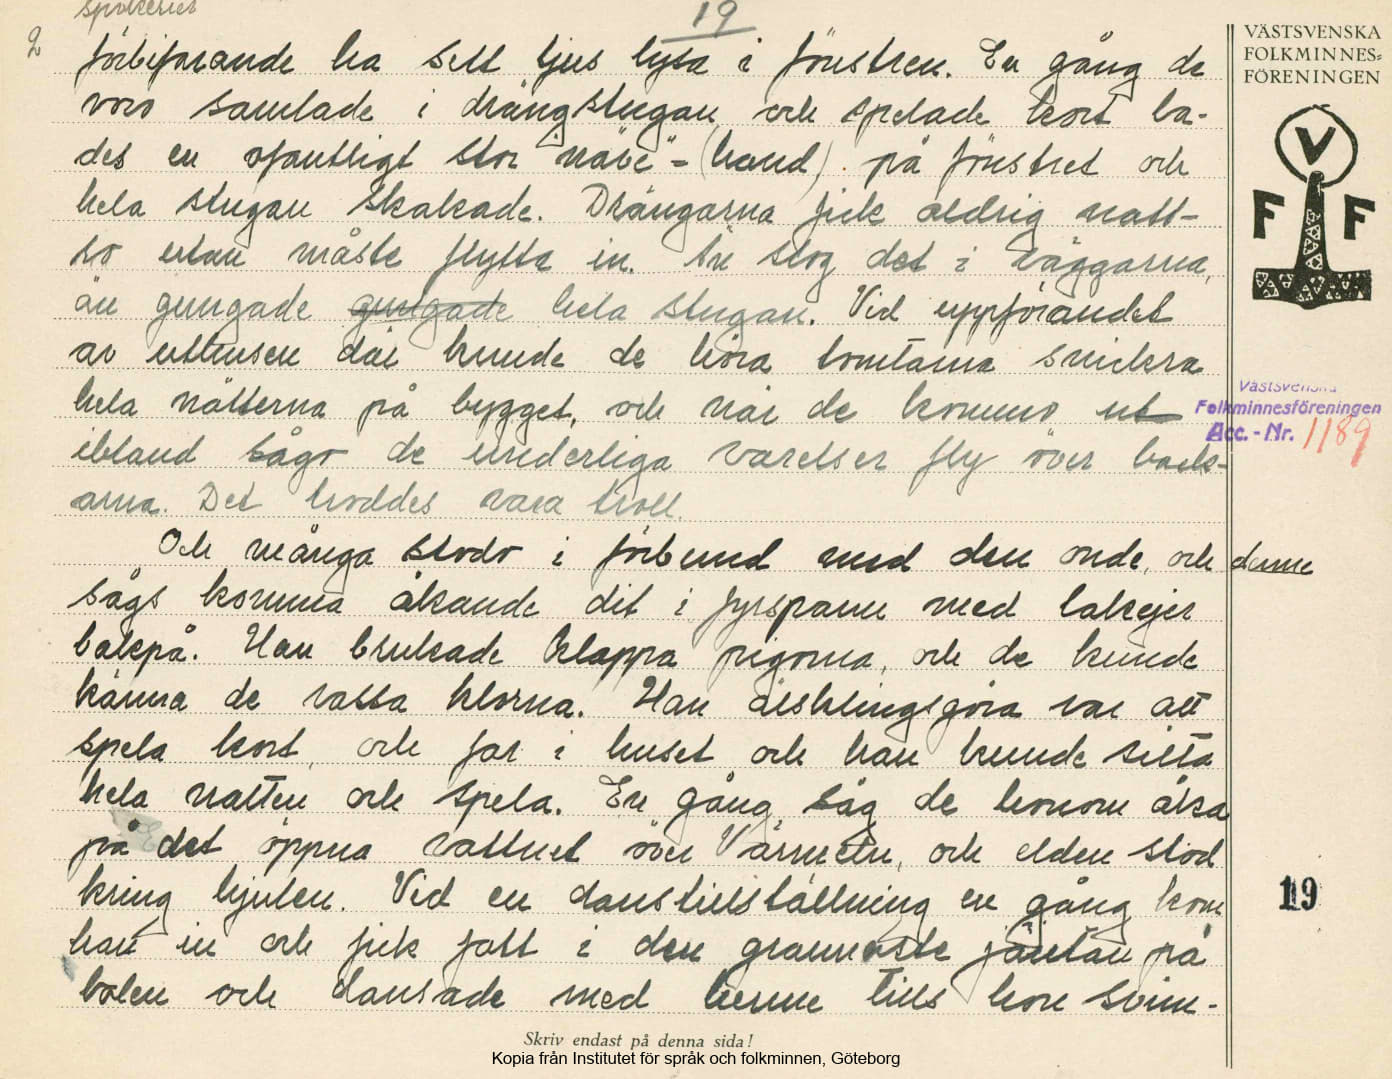 spökeriet
19
2
förbifarande ha sett ljus lysa i fönstren. En gång de
voro samlade i drängstugan och spelade kort la-
des en ofantligt stor "näve" = (hand) på fönstret och
hela stugan skakade. Drängarna fick aldrig natt-
ro utan måste flytta in. Än slog det i väggarna,
än gungade gungade hela stugan. Vid uppförandet
av uthusen där kunde de höra tomtarna snickra
hela nätterna på bygget, och när de kommo ut
ibland sågo de underliga varelser fly över back-
arna. Det troddes vara troll.
Och många stodo i förbund med den onde, och denne
sågs komma åkande dit i fyrspann med lakejer
bakpå. Han brukade klappa pigorna, och de kunde
känna de vassa klorna. Han älsklingsgöra var att
spela kort, och far i huset och han kunde sitta
hela natten och spela. En gång såg de honom åka
på det öppna vattnet över Värmeln, och elden stod
kring hjulen. Vid en danstillställning en gång kom
han in och fick fatt i den grannaste jäntan på
balen och dansade med henne tills hon svim-
Skriv endast på denna sida!
Kopia från Institutet för språk och folkminnen, Göteborg
VÄSTSVENSKA
FOLKMINNES=
FÖRENINGEN
V
F F
Västsvenska
Folkminnesföreningen
Acc. - Nr. 1189
19